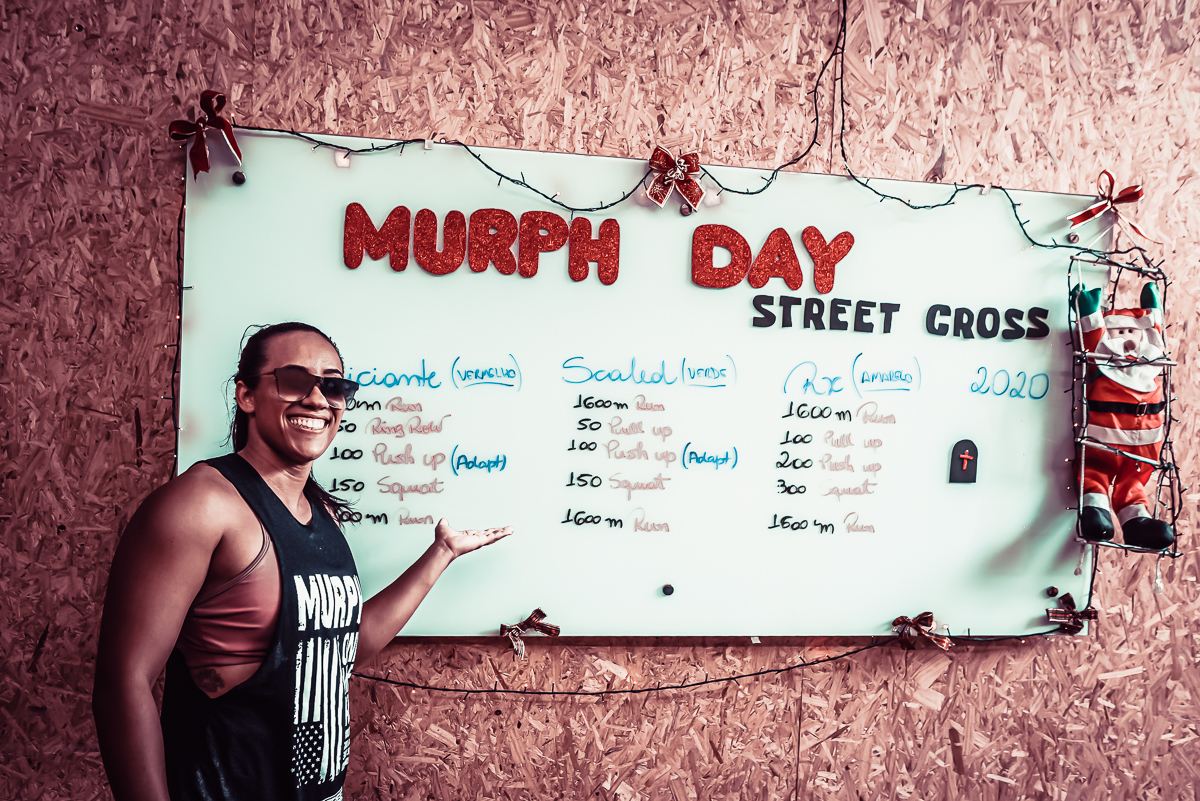 MURPH DAY
STREET CROSS
iciante (VERMELHO)
0m Run
50 Ring Row
100 Push up (Adapt)
150 Squat
00 m Run
Scaled (VERDE)
1600m Run
50 Pull up
100 Push up (Adapt)
150 Squat
1600m Run
Rx (AMARELO)
1600 m Run
100 Pull up
200 Push up
300 Squat
1600 m Run
2020
MURPH